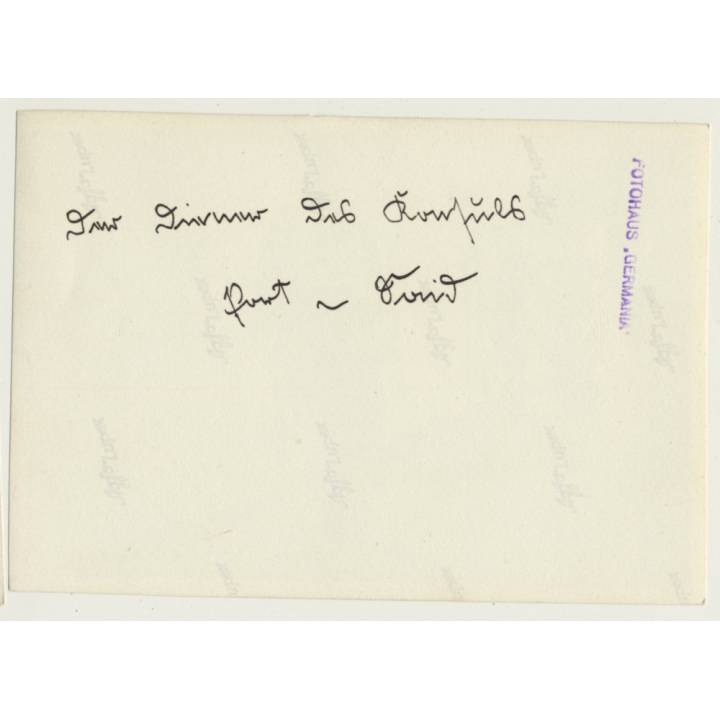 Der Diener des Konsuls
Port ~ Said
FOTOHAUS „GERMANIA"